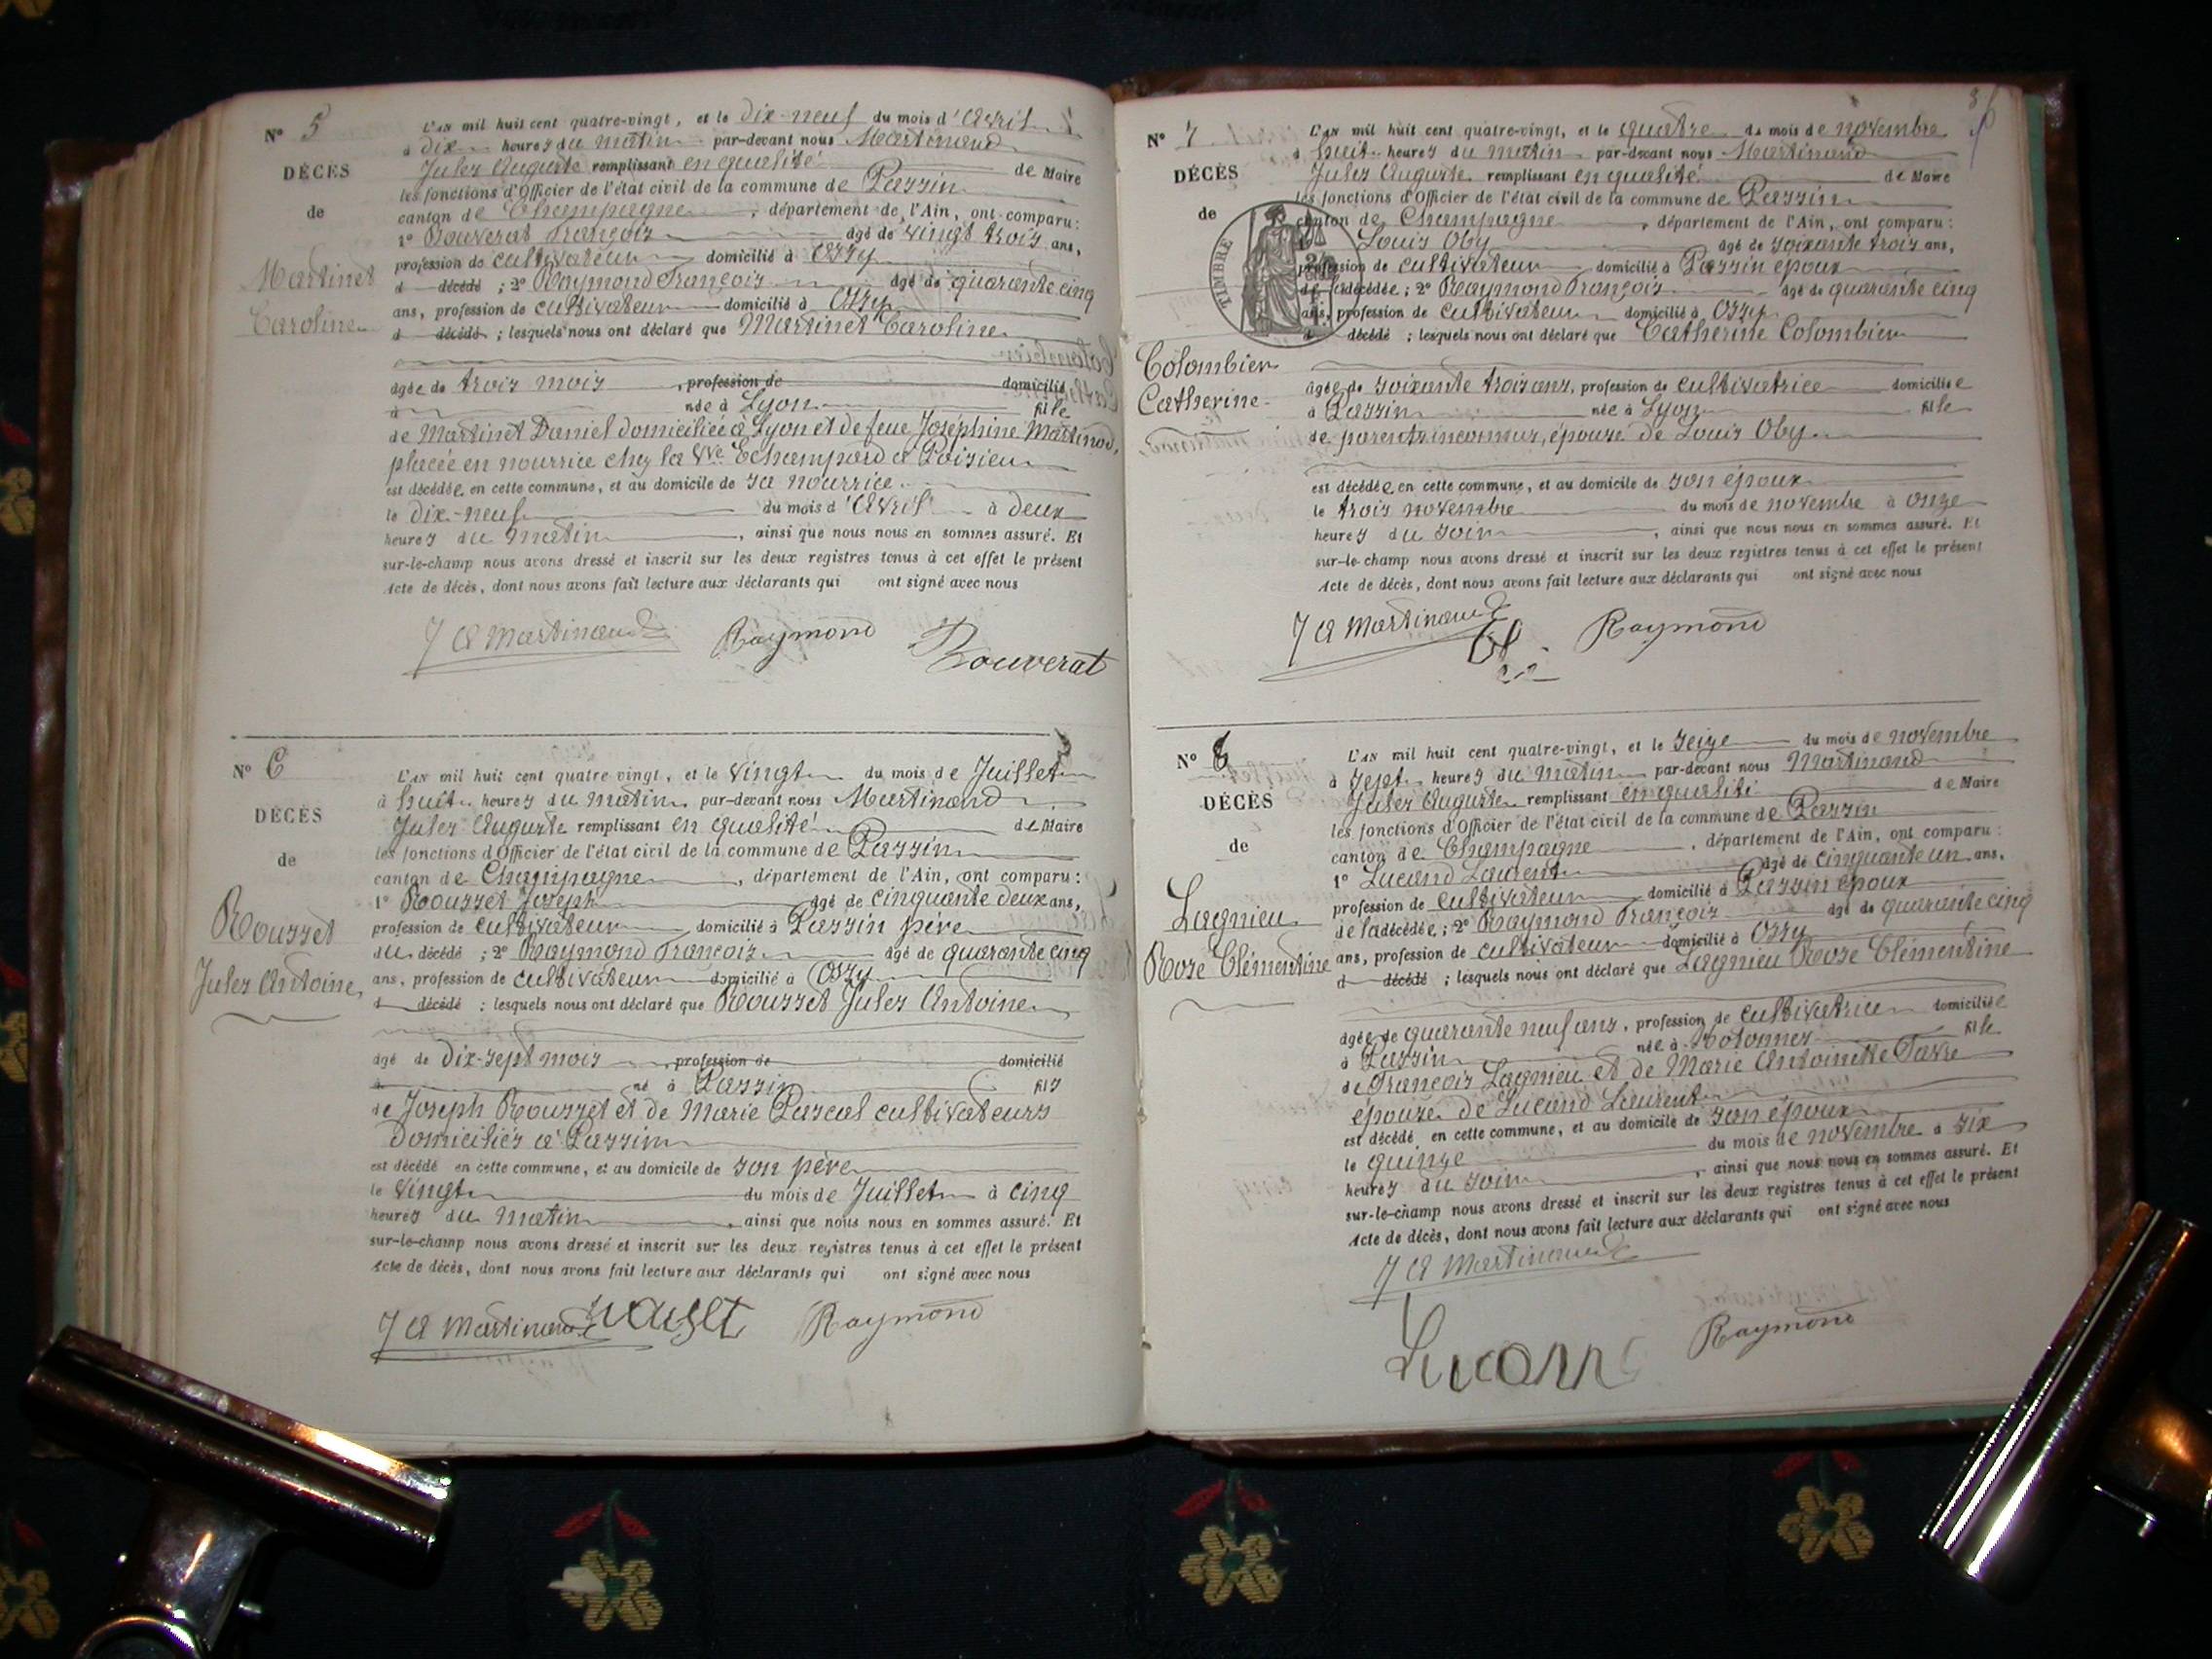 N° 5
DÉCÈS
de
Martinet
Caroline
L'AN mil huit cent quatre-vingt, et le dix-neuf du mois d'Avril
à dix heures du matin par-devant nous Martinand
Jules Auguste remplissant en qualité de Maire
les fonctions d'Officier de l'état civil de la commune de Passin
canton de Champagne, département de l'Ain, ont comparu :
1° Bouverat François âgé de vingt trois ans,
profession de cultivateur domicilié à Ossy
d décédé ; 2° Raymond François âgé de quarante cinq
ans, profession de cultivateur domicilié à Ossy
d décédé ; lesquels nous ont déclaré que Martinet Caroline
âgée de trois mois, profession de domicilié
à née à Lyon fille
de Martinet Daniel domiciliée à Lyon et de feue Joséphine Martinod,
placée en nourrice chez la Vve Echampard à Poisieu
est décédée en cette commune, et au domicile de sa nourrice.
le dix-neuf du mois d'Avril à deux
heures du matin, ainsi que nous nous en sommes assuré. Et
sur-le-champ nous avons dressé et inscrit sur les deux registres tenus à cet effet le présent
Acte de décès, dont nous avons fait lecture aux déclarants qui ont signé avec nous
J A Martinand Raymond Bouverat
N° 6
DÉCÈS
de
Rousset
Jules Antoine
L'AN mil huit cent quatre-vingt, et le vingt du mois de Juillet
à huit heures du matin par-devant nous Martinand
Jules Auguste remplissant en qualité de Maire
les fonctions d'Officier de l'état civil de la commune de Passin
canton de Champagne, département de l'Ain, ont comparu :
1° Rousset Joseph âgé de cinquante deux ans,
profession de cultivateur domicilié à Passin père
du décédé ; 2° Raymond François âgé de quarante cinq
ans, profession de cultivateur domicilié à Ossy
d décédé ; lesquels nous ont déclaré que Rousset Jules Antoine
âgé de dix-sept mois, profession de domicilié
à né à Passin fils
de Joseph Rousset et de Marie Pascal cultivateurs
domiciliés à Passin
est décédé en cette commune, et au domicile de son père
le vingt du mois de Juillet à cinq
heures du matin, ainsi que nous nous en sommes assuré. Et
sur-le-champ nous avons dressé et inscrit sur les deux registres tenus à cet effet le présent
Acte de décès, dont nous avons fait lecture aux déclarants qui ont signé avec nous
J A Martinand Raymond
N° 7
DÉCÈS
de
TIMBRE
Colombier
Catherine
L'AN mil huit cent quatre-vingt, et le quatre du mois de novembre
à huit heures du matin par-devant nous Martinand
Jules Auguste remplissant en qualité de Maire
les fonctions d'Officier de l'état civil de la commune de Passin
canton de Champagne, département de l'Ain, ont comparu :
Louis Oby âgé de soixante trois ans,
profession de cultivateur domicilié à Passin époux
de la décédée ; 2° Raymond François âgé de quarante cinq
ans, profession de cultivateur domicilié à Ossy
d décédé ; lesquels nous ont déclaré que Catherine Colombier
âgée de soixante trois ans, profession de cultivatrice domiciliée
à Passin née à Lyon fille
de parents inconnus, épouse de Louis Oby
est décédée en cette commune, et au domicile de son époux
le trois novembre du mois de novembre à onze
heures du soir, ainsi que nous nous en sommes assuré. Et
sur-le-champ nous avons dressé et inscrit sur les deux registres tenus à cet effet le présent
Acte de décès, dont nous avons fait lecture aux déclarants qui ont signé avec nous
J A Martinand Raymond
N° 8
DÉCÈS
de
Lagnieu
Rose Clémentine
L'AN mil huit cent quatre-vingt, et le seize du mois de novembre
à sept heures du matin par-devant nous Martinand
Jules Auguste remplissant en qualité de Maire
les fonctions d'Officier de l'état civil de la commune de Passin
canton de Champagne, département de l'Ain, ont comparu :
1° Lucand Laurent âgé de cinquante un ans,
profession de cultivateur domicilié à Passin époux
de la décédée ; 2° Raymond François âgé de quarante cinq
ans, profession de cultivateur domicilié à Ossy
d décédé ; lesquels nous ont déclaré que Lagnieu Rose Clémentine
âgée de quarante neuf ans, profession de cultivatrice domiciliée
à Passin née à Hotonnes fille
de François Lagnieu et de Marie Antoinette Favre
épouse de Lucand Laurent
est décédé en cette commune, et au domicile de son époux
le quinze du mois de novembre à six
heures du soir, ainsi que nous nous en sommes assuré. Et
sur-le-champ nous avons dressé et inscrit sur les deux registres tenus à cet effet le présent
Acte de décès, dont nous avons fait lecture aux déclarants qui ont signé avec nous
J A Martinand
Lucand Raymond